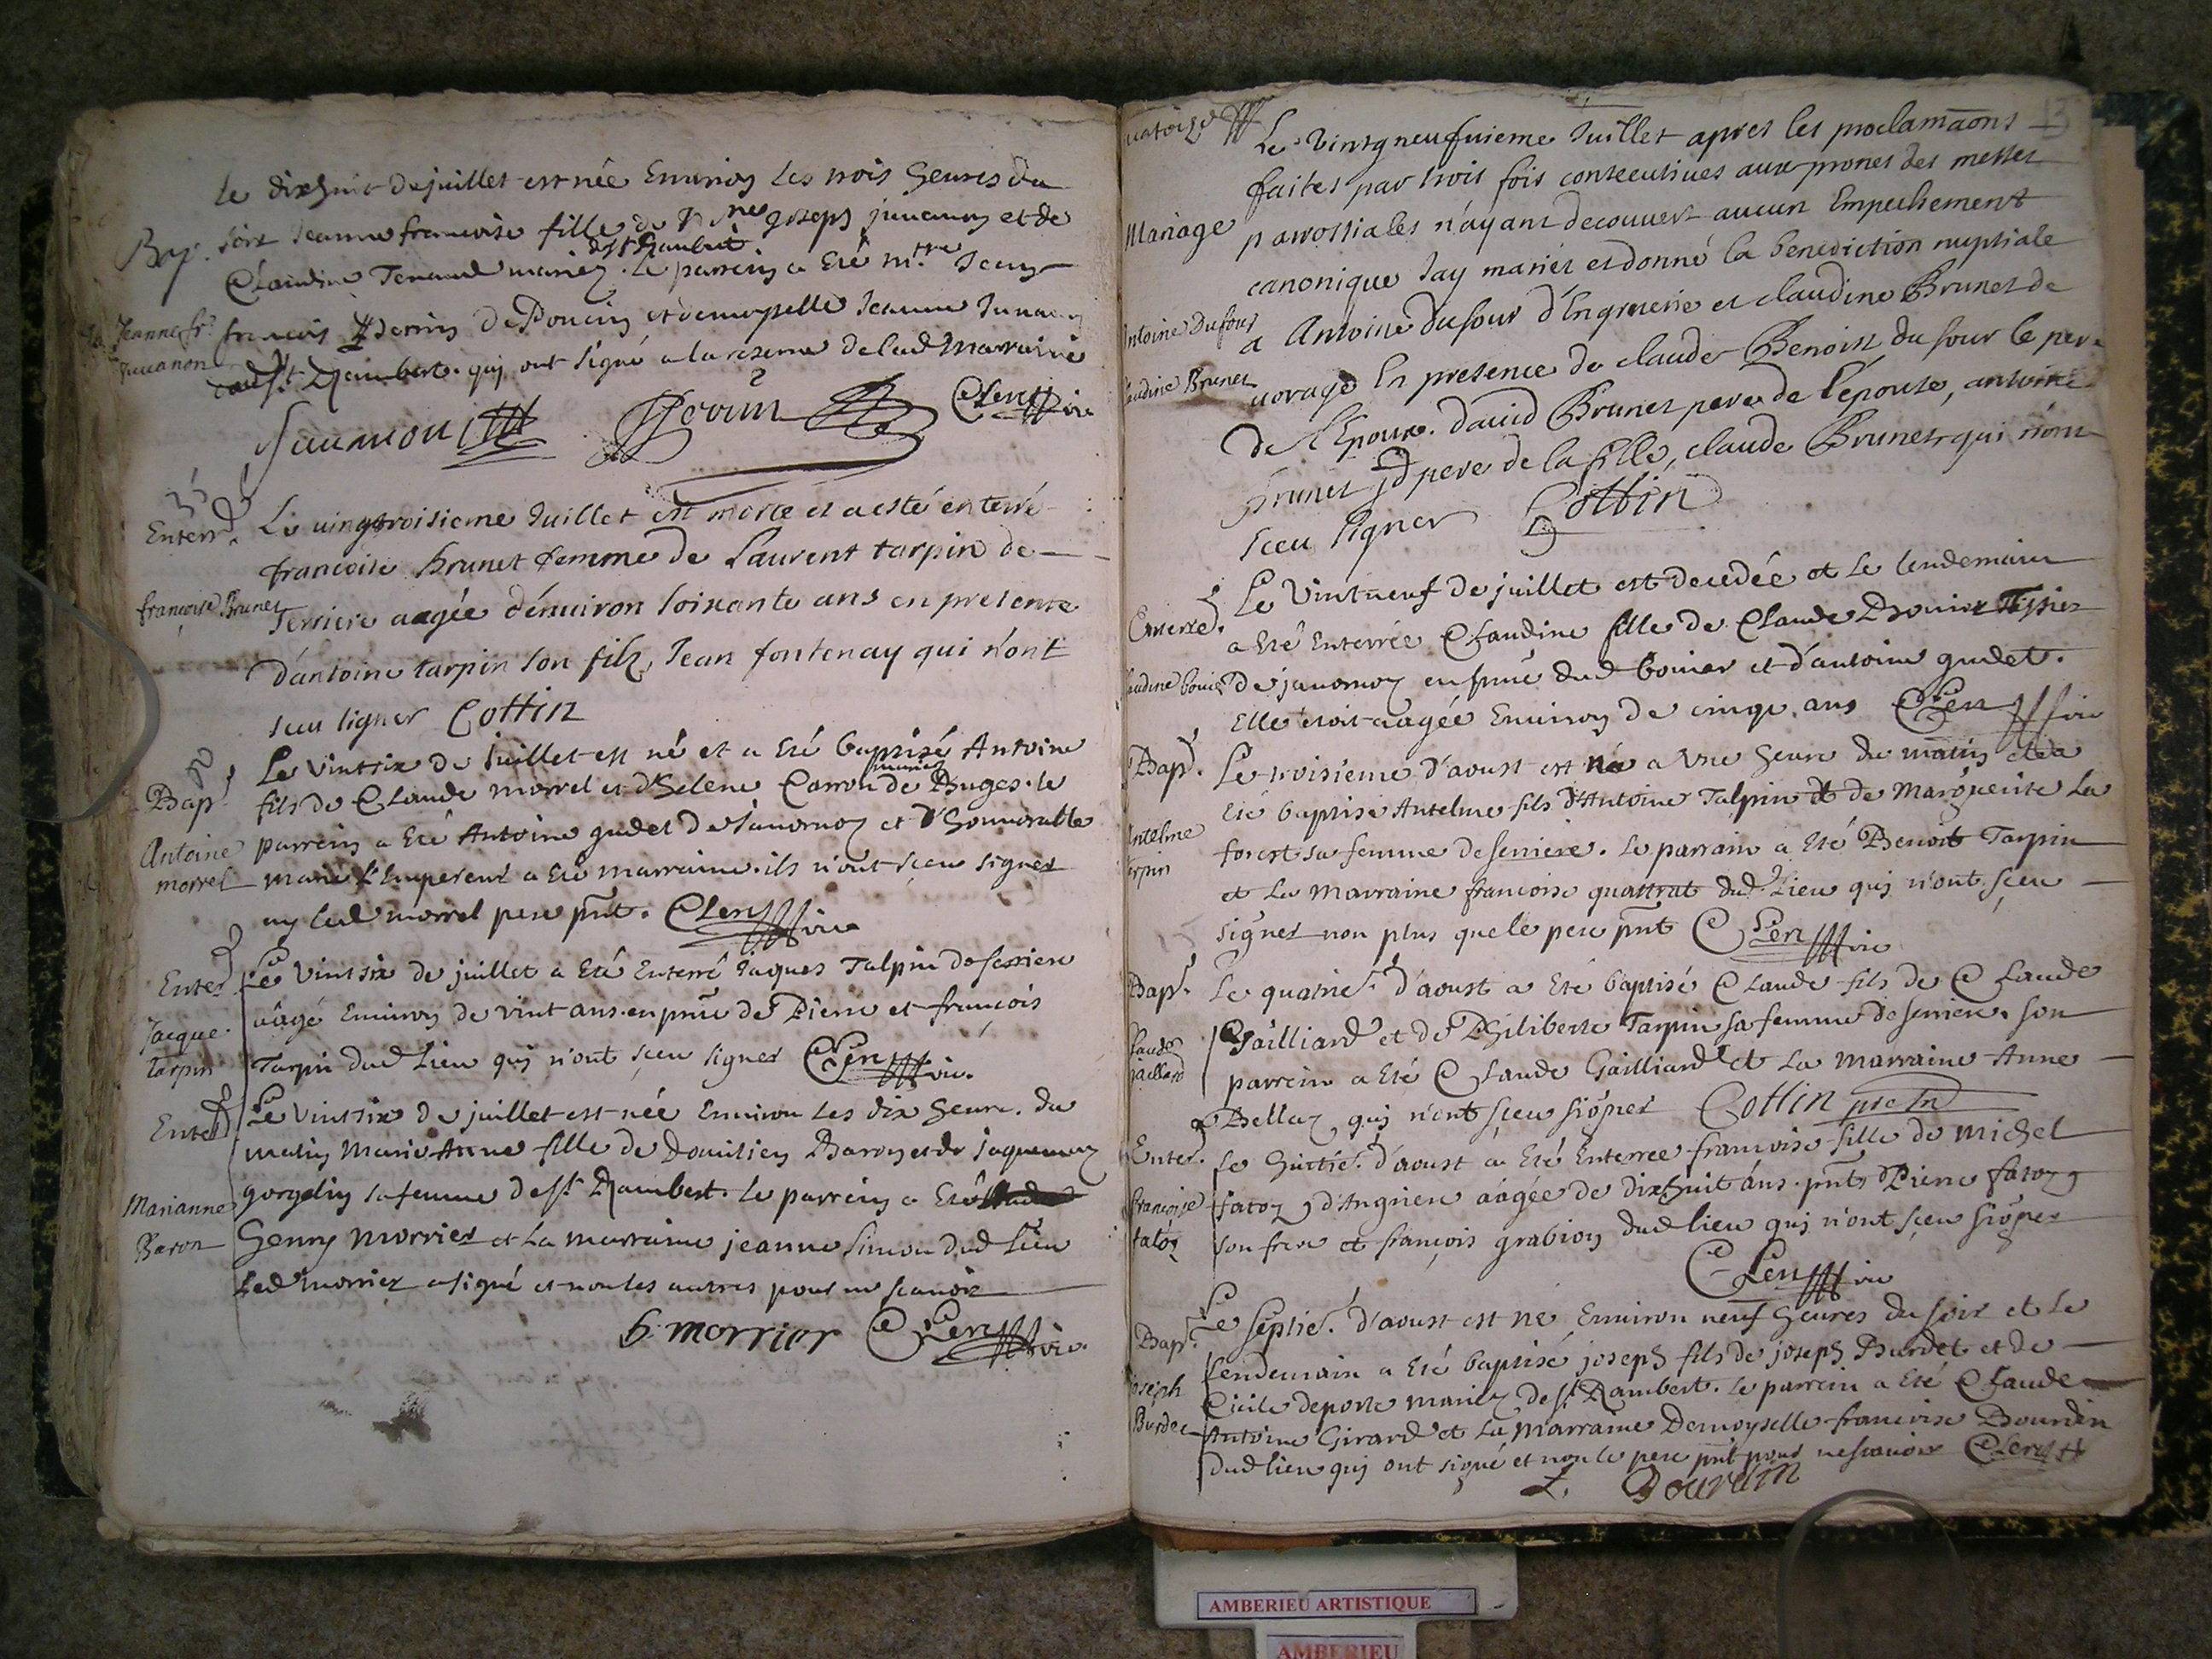 le dixhuit de juillet est née Environ les trois heures du
Bap. soir Jeanne francoise fille de Joseph juvanon et de
de St Rambert
Claudine Tenand mariez. Le parrein a Eté Mtre Jean
Jeanne fr.
Juvanon
francois Perrin de Poncin et demoyselle Jeanne Juvanon
St Rambert. qui ont signé a la reserve de lad Marraine
Juvanon Clerc vic
Enterr.
Le vingtroisieme Juillet est morte et a esté enterré
francoise Brunet femme de Laurent tarpin de
françoise Brunet
Serriere aagée d'environ soixante ans en presence
d'antoine tarpin son filz, Jean fontenay qui n'ont
sceu signer Cottin
Bapt.
Le vintsix de Juillet est né et a Eté baptisé Antoine
fils de Claude morrel et d'helene Carron de Buges. le
mariez
Antoine
morrel
parrein a Eté Antoine gudet de Javornoz et d'honnorable
marie l'Empereur a Eté marraine. ils n'ont sceu signer
ny led morrel pere pnt. Clerc vic
Enter.
Le vintsix de juillet a Eté Enterré Jaques Talpin de serriere
Jacque
tarpin
aâgé Environ de vint ans. en pnce de Pierre et françois
Tarpin dud Lieu qui n'ont sceu signer Clerc vic.
Enter
Le vintsix de juillet est née Environ les dix heure. du
matin Marie Anne fille de Domitien Baron et de jaquemaz
Marianne
Baron
gorgelin sa femme de St Rambert. le parrein a Eté
henry morrier et la marraine jeanne simon dud Lieu
Led morrier a signé et non les autres pour ne scavoir
h. morrier Clerc vic.
Le Vintgneufvieme Juillet apres les proclamaons
faites par trois fois consecutives aux prones des messes
Mariage
parossiales n'ayant decouvert aucun Empechement
canonique Jay mariés et donné la benediction nuptiale
Antoine Dufour
a Antoine dufour d'Ingrnerie et claudine Brunet de
audine Brunet
vorage En presence de claude Benoist du four le pere
de l'Epoux. david Brunet pere de l'épouse, antoine
Brunet gd pere de la fille, claude Brunet, qui n'ont
sceu signer Cottin
Enterré.
Le Vintneuf de juillet est decedée et le lendemain
a Eté Enterrée Claudine fille de Claude Bouvier Tissier
audine bouvier
de javornoz en pnce dud bouvier et d'antoine gudet.
Elle etoit aagée Environ de cinqz. ans Clerc vic
Bapt.
Le troisieme d'aoust est né a Une heure du matin et a
Eté baptisé Antelme fils d'Antoine Talpin et de Marguerite La
Antelme
tarpin
forest sa femme de serriere. le parrain a Eté Benoit Tarpin
et La Marraine francoise quattrat dud. Lieu qui n'ont sceu
signer non plus que le pere pnt Clerc vic
Bapt.
Le quatrie. d'aoust a Eté baptisé Claude fils de Claude
Claude
gaillard
Gailliard et de Philiberte Tarpin sa femme de serriere. son
parrein a Eté Claude Gailliard et La Marraine Anne
Bellaz, qui n'ont sceu signer Cottin
Enter.
le huitie. d'aoust a Eté Enterree francoise fille de michel
francoise
fatoz d'Angrieu aâgée de dixhuit ans. pnts Pierre fatoz
son frere et françois grabioz dud lieu qui n'ont sceu signer
Clerc vic
Bapt.
Le septie. d'aoust est né Environ neuf heures du soir et le
lendemain a Eté baptisé joseph fils de joseph Burdet et de
joseph
Burdet
Cicile deporte mariez de St Rambert. le parrein a Eté Claude
Antoine Girard et La Marraine Demoyselle francoise Bourdin
dud lieu qui ont signé et non le pere pnt pour ne scavoir Clerc
Bourdin
AMBERIEU ARTISTIQUE
AMBERIEU